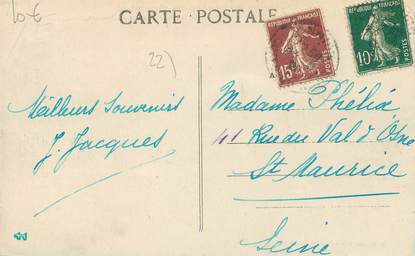 10€
CARTE POSTALE
22)
REPUBLIQUE FRANÇAISE
15c
POSTES
REPUBLIQUE FRANÇAISE
10c
POSTES
Meilleurs Souvenirs
J. Jacques
Madame Phélix
41 Rue du Val d'Osne
St Maurice
Seine